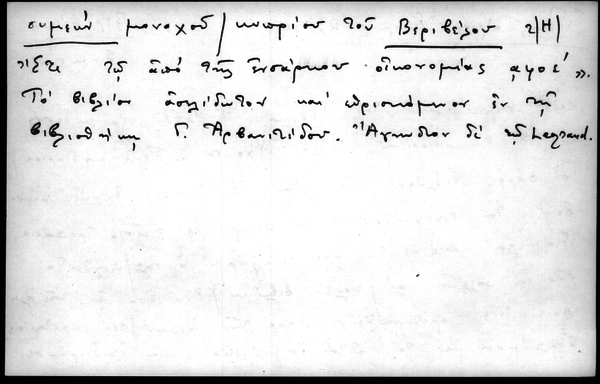 συμεών μοναχοῦ / κυπρίου τοῦ Βεριβέλου
"ἔτει τῷ ἀπό τῆς ἐνσάρκου οἰκονομίας ͵αφοε΄".
Τό βιβλίον ἀσελίδωτον καί εὑρισκόμενον ἐν τῇ
βιβλιοθήκῃ Γ. Ἀρβανιτίδου. Ἄγνωστον δέ τῷ Legrand.